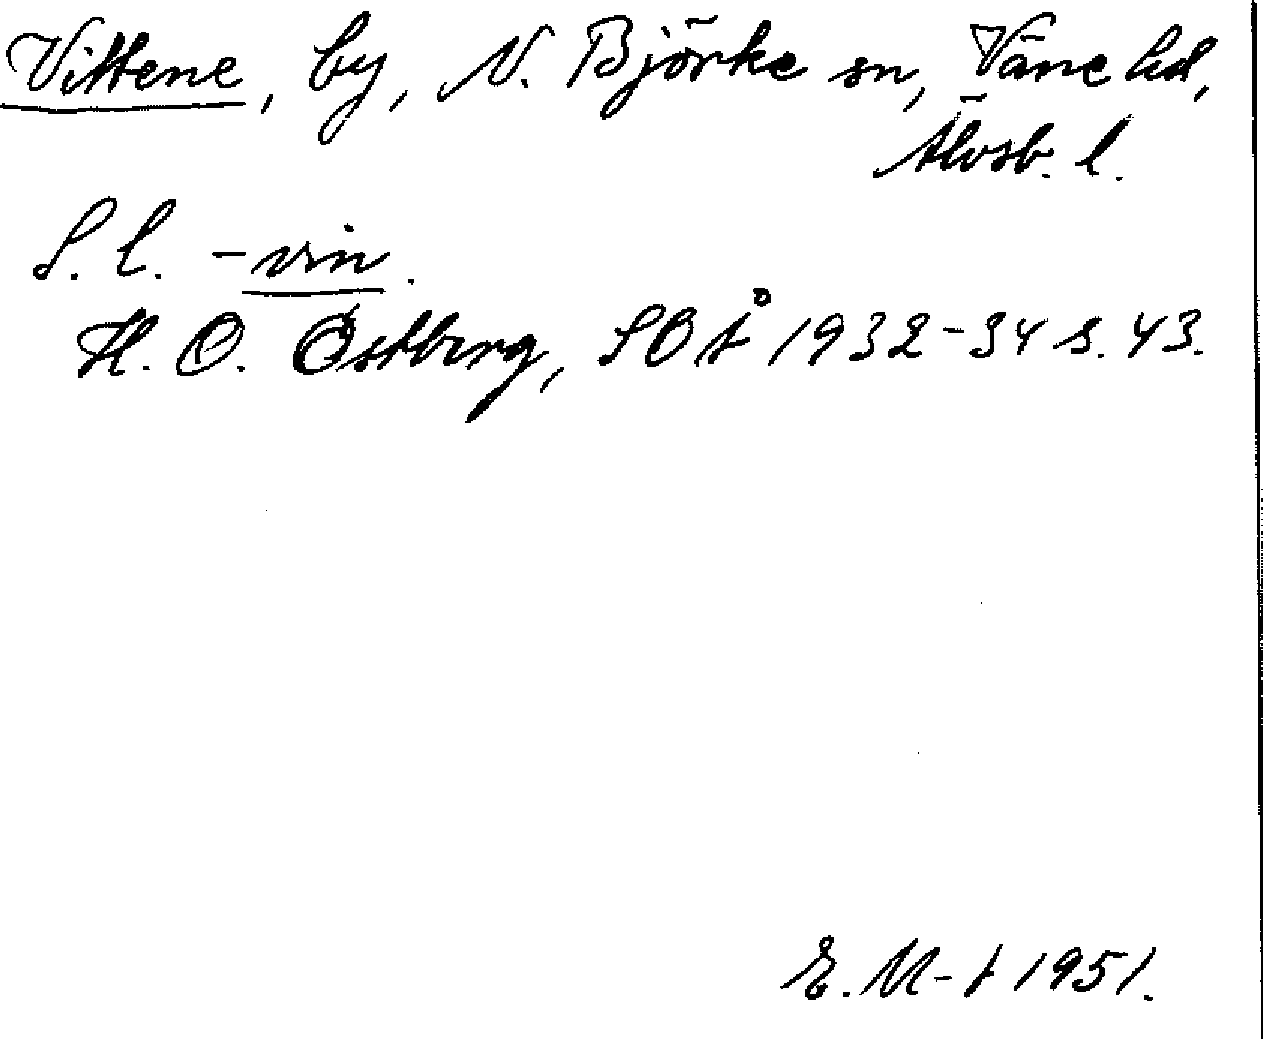 Vittene, by, N. Björke sn, Väne hd,
Älvsb. l.
S. l. -vin.
H. O. Östberg, SOÅ 1932-34 s. 43.
E. M-t 1951.